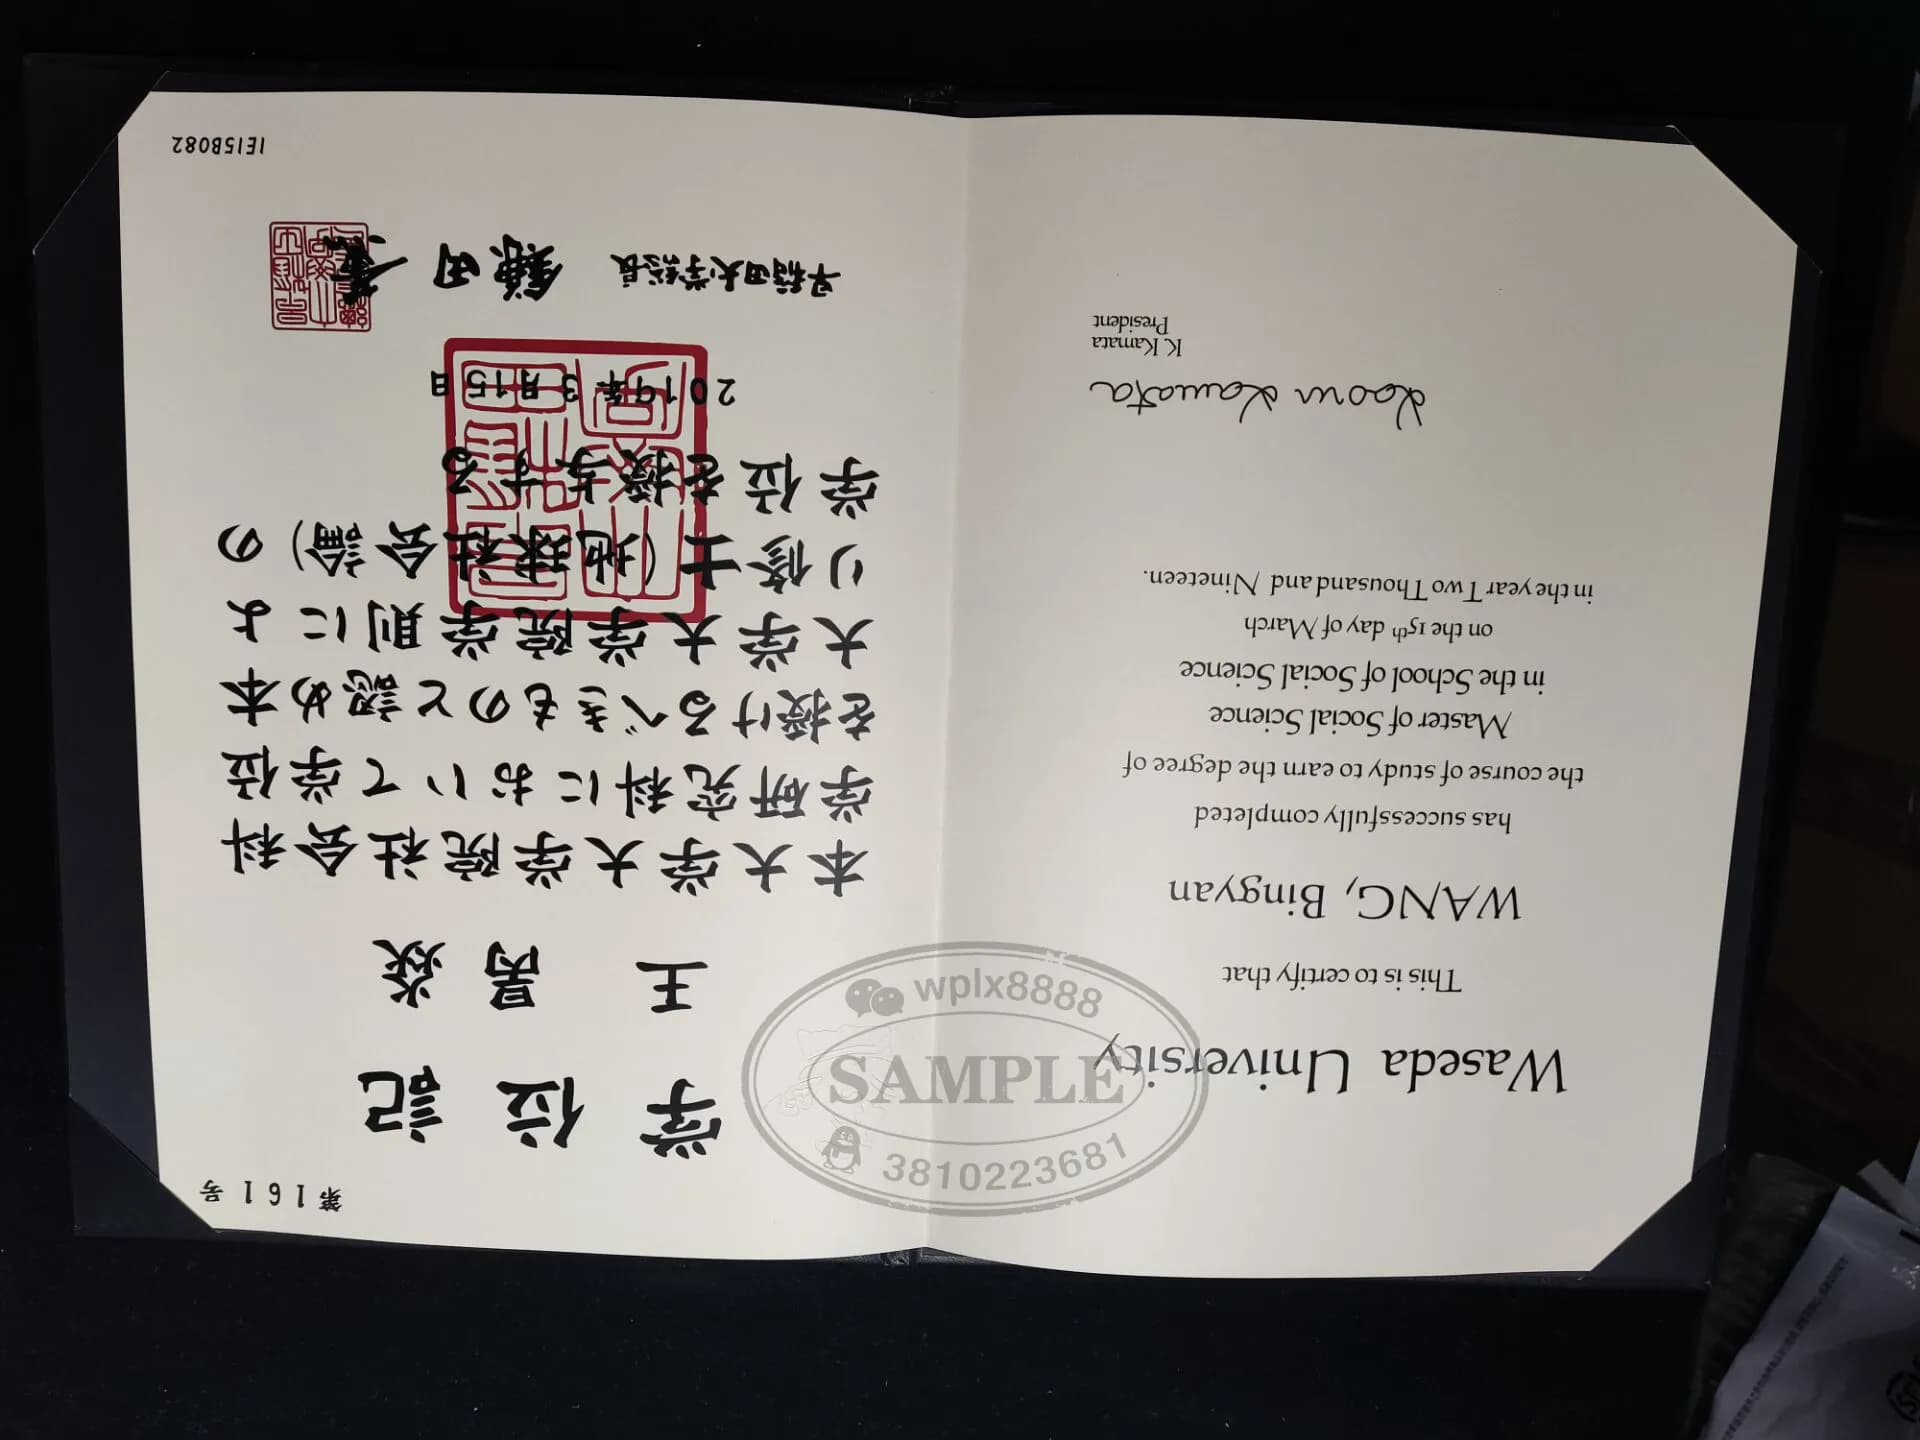 第161号
学位記
王昺焱
本大学大学院社会科
学研究科において学位
を授けるべきものと認め本
大学大学院学則によ
り修士(地球社会論)の
学位を授与する
2019年3月15日
早稲田大学総長 鎌田 薫
1E15B082
Waseda University
This is to certify that
WANG, Bingyan
has successfully completed
the course of study to earn the degree of
Master of Social Science
in the School of Social Science
on the 15th day of March
in the year Two Thousand and Nineteen.
Kaoru Kamata
K. Kamata
President
wplx8888
SAMPLE
3810223681